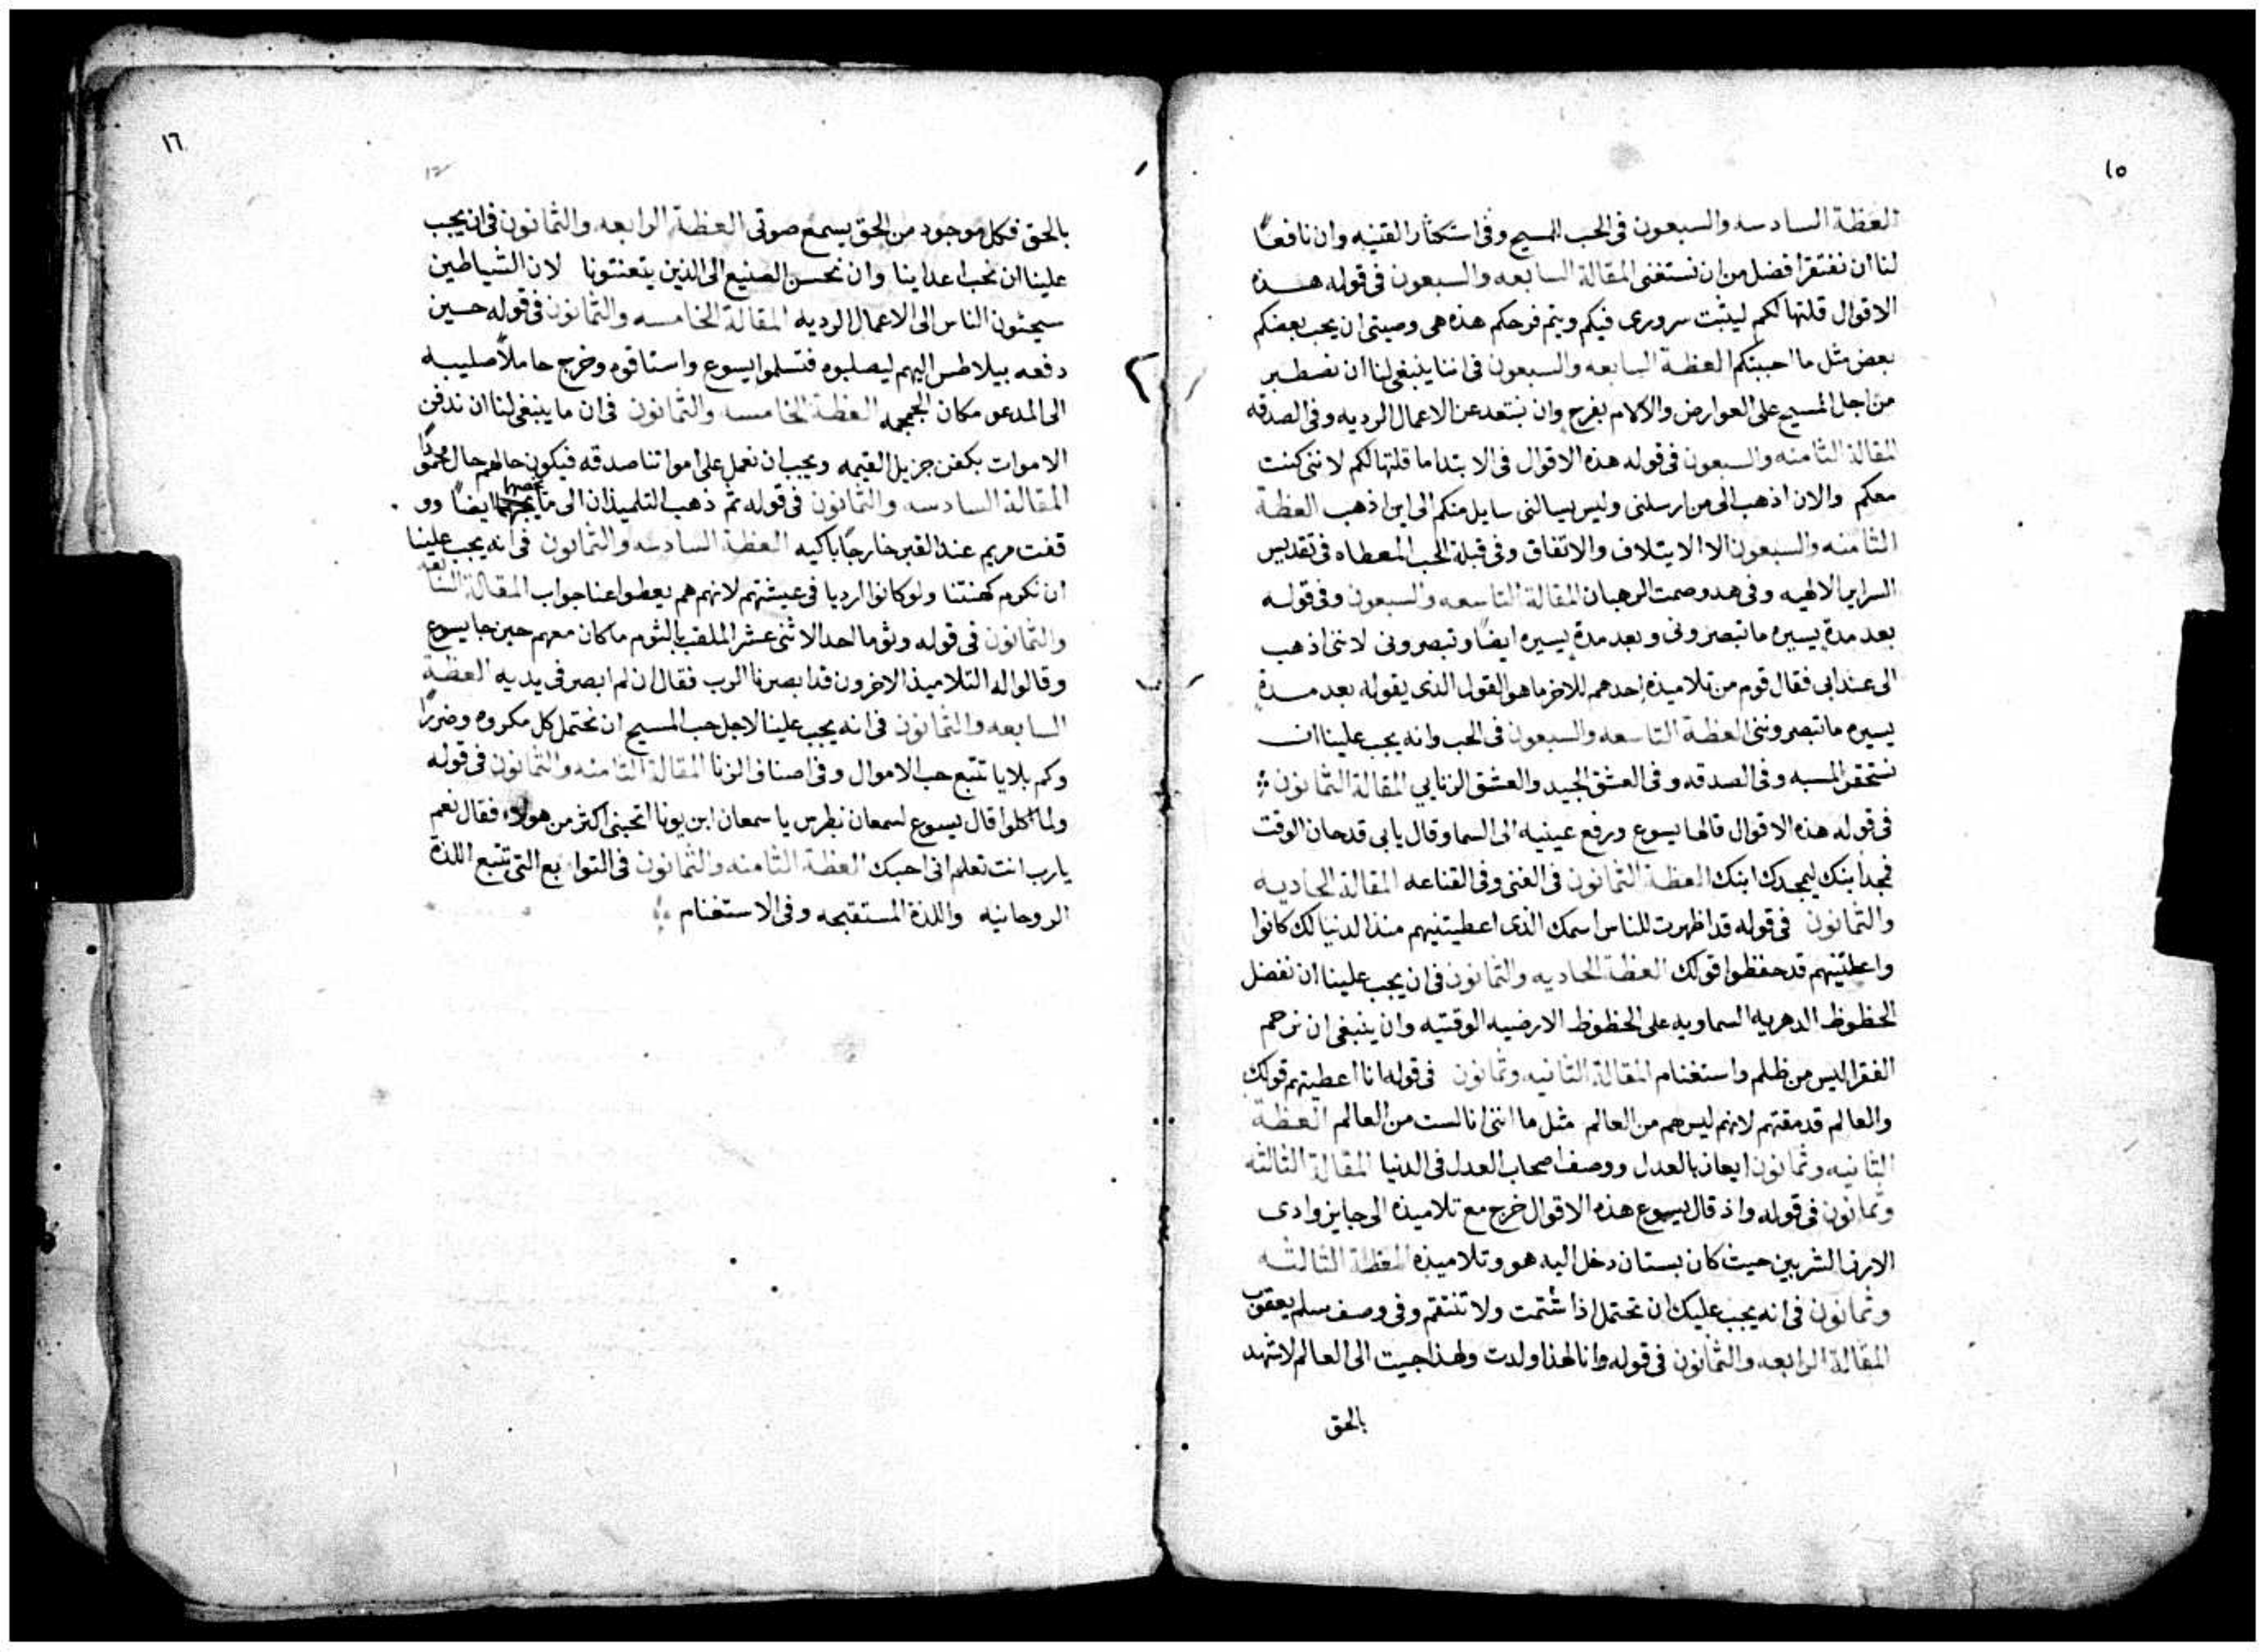 ١٥
العظة السادسه والسبعون فى الحب المسيح وفى استكثار القنيه وان نافعًا
لنا ان نفتقر افضل من ان نستغنى المقالة السابعه والسبعون فى قوله هذه
الاقوال قلتها لكم ليثبت سرورى فيكم ويتم فرحكم هذه هى وصيتى ان يحب بعضكم
بعض مثل ما احببتكم العظة السابعه والسبعون فى اننا ينبغى لنا ان نصطبر
من اجل المسيح على العوارض والالام بفرح وان نبتعد عن الاعمال الرديه وفى الصدقه
المقالة الثامنه والسبعون فى قوله هذه الاقوال فى الابتدا ما قلتها لكم لاننى كنت
معكم والان اذهب الى من ارسلنى وليس يسالنى سايل منكم الى اين اذهب العظة
الثامنه والسبعون الا الايتلاف والاتفاق وفى قبلة الحب المعطاه فى تقديس
السراير الالهيه وفى هدو وصمت الرهبان المقالة التاسعه والسبعون وفى قوله
بعد مدة يسيره ما تبصرونى وبعد مدة يسيره ايضًا وتبصرونى لاننى اذهب
الى عند ابى فقال قوم من تلاميذه احدهم للاخر ما هو القول الذى يقوله بعد مدة
يسيره ما تبصروننى العظة التاسعه والسبعون فى الحب وانه يجب علينا ان
نستحقر المسبه وفى الصدقه وفى العشق الجيد والعشق الزنايى المقالة الثمانون
فى قوله هذه الاقوال قالها يسوع ورفع عينيه الى السما وقال يا بى قد حان الوقت
فمجد ابنك ليمجدك ابنك العظة الثمانون فى الغنى وفى القناعه المقالة الحاديه
والثمانون فى قوله قد اظهرت للناس اسمك الذى اعطيتنيهم منذ الدنيا لك كانوا
واعطتينهم قد حفظوا قولك العظة الحاديه والثمانون فى ان يجب علينا ان نفضل
الحظوظ الدهريه السماويه على الحظوظ الارضيه الوقتيه وان ينبغى ان نرحم
الفقرا ليس من ظلم واستغنام المقالة الثانيه وثمانون فى قوله انا اعطيتهم قولك
والعالم قد مقتهم لانهم ليس هم من العالم مثل ما اننى انا لست من العالم العظة
الثانيه وثمانون ايعاز بالعدل ووصف اصحاب العدل فى الدنيا المقالة الثالثه
وثمانون فى قوله واذ قال يسوع هذه الاقوال خرج مع تلاميذه الى جايز وادى
الارز الشربين حيث كان بستان دخل اليه هو وتلاميذه العظة الثالثه
وثمانون فى انه يجب عليك ان تحتمل اذا شتمت ولا تنتقم وفى وصف سلم يعقوب
المقالة الرابعه والثمانون فى قوله وانا لهذا ولدت ولهذا جيت الى العالم لاشهد
بالحق
١٦
بالحق فكل موجود من الحق يسمع صوتى العظة الرابعه والثمانون فى ان يجب
علينا ان نحب اعداينا وان نحسن الصنيع الى الذين يتعنتونا لان الشياطين
سيحثون الناس الى الاعمال الرديه المقالة الخامسه والثمانون فى قوله حسين
دفعه بيلاطس اليهم ليصلبوه فتسلموا يسوع واستاقوه وخرج حاملاً صليبه
الى المدعو مكان الجمجمه العظة الخامسه والثمانون فى ان ما ينبغى لنا ان ندفن
الاموات بكفن جزيل القيمه ويجب ان نعمل على امواتنا صدقه فيكون حالهم حال محمودًا
المقالة السادسه والثمانون فى قوله ثم ذهب التلميذان الى ايضًا وو
قفت مريم عند القبر خارجًا باكيه العظة السادسه والثمانون فى انه يجب علينا
ان نكرم كهنتنا ولو كانوا ارديا فى عيشتهم لانهم هم يعطوا عنا جواب المقالة السابعه
والثمانون فى قوله وثوما احد الاثنى عشر الملقب بالثوم ما كان معهم حين جا يسوع
وقالوا له التلاميذ الاخرون قد ابصرنا الرب فقال ان لم ابصر فى يديه العظة
السابعه والثمانون فى انه يجب علينا لاجل حب المسيح ان نحتمل كل مكروه وضررًا
وكم بلايا تتبع حب الاموال وفى اصناف الزنا المقالة الثامنه والثمانون فى قوله
ولما اكلوا قال يسوع لسمعان بطرس يا سمعان ابن يونا اتحبنى اكثر من هولاء فقال نعم
يارب انت تعلم انى احبك العظة الثامنه والثمانون فى التوابع التى تتبع اللذة
الروحانيه واللذة المستقبحه وفى الاستغنام